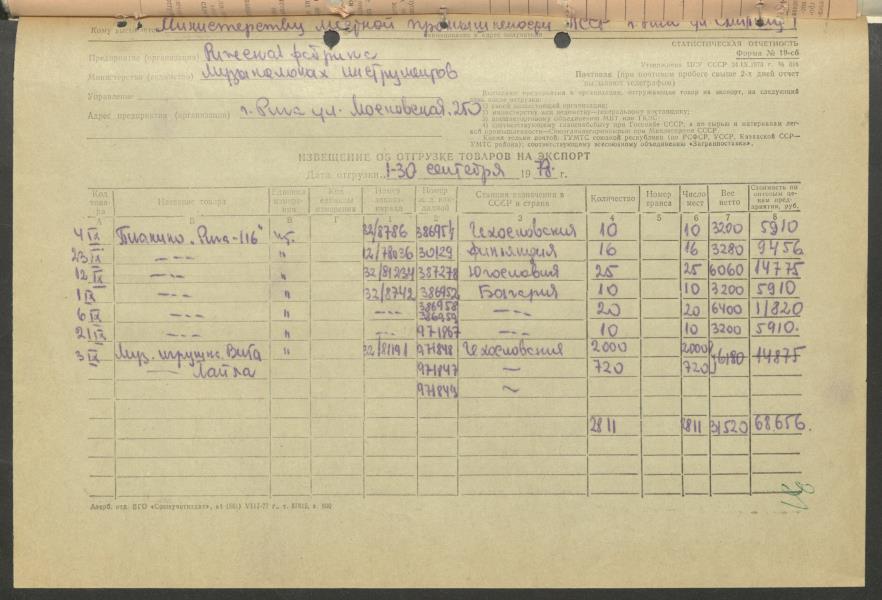 Кому высылается Министерству местной промышленности ЛССР г. Рига ул.
наименование и адрес получателя
СТАТИСТИЧЕСКАЯ ОТЧЕТНОСТЬ
Форма № 19-сб
Утверждена ЦСУ СССР 24.IX.1973 г. №
Почтовая (при почтовом пробеге свыше 2-х дней отчет
высылают телеграфом)
Предприятие (организация) Рижская фабрика
Министерство (ведомство) музыкальных инструментов
Управление
Адрес предприятия (организации) г. Рига ул. Московская, 250
Высылают предприятия и организации, отгружающие товар на экспорт, на следующий
день после отгрузки:
1) своей вышестоящей организации;
2) министерству или ведомству—генеральному поставщику;
3) внешнеторговому объединению МВТ или ГКЭС;
4) соответствующему главснабсбыту при Госснабе СССР, а по сырью и материалам лег-
кой промышленности—Союзглавлегпромсырью при Минлегпроме СССР
Кроме того, почтой: ГУМТС союзной республики (по РСФСР, УССР, Казахской ССР—
УМТС района); соответствующему всесоюзному объединению «Заграпоставка».
ИЗВЕЩЕНИЕ ОБ ОТГРУЗКЕ ТОВАРОВ НА ЭКСПОРТ
Дата отгрузки 1-30 сентября 1978 г.
Код товара Наименование товара Единица измерения Код единицы измерения Номер заказа-наряда Номер ж. д. накладной Станция назначения в СССР и страна Количество Номер транса Число мест Вес нетто Стоимость по оптовым ценам предприятия, руб.
А Б В Г 1 2 3 4 5 6 7 8
4 IX Пианино „Рига-116" шт. 32/8786 386951 Чехословения 10 10 3200 5910
23 IX — - — " 12/78036 30129 Финляндия 16 16 3280 9456
12 IX — - — " 32/81234 387278 Югославия 25 25 6060 14775
1 IX — - — " 32/8742 386952 Болгария 10 10 3200 5910
6 IX — - — " — - — 386958 386959 — - — 20 20 6400 11820
21 IX — - — " — - — 971867 — - — 10 10 3200 5910.
3 IX Муз. игрушка Вита " 32/81191 971848 Чехословения 2000 2000 6180 14875
— Лайла 971847 — 720 720
971849 ~
2811 2811 31520 68.656.